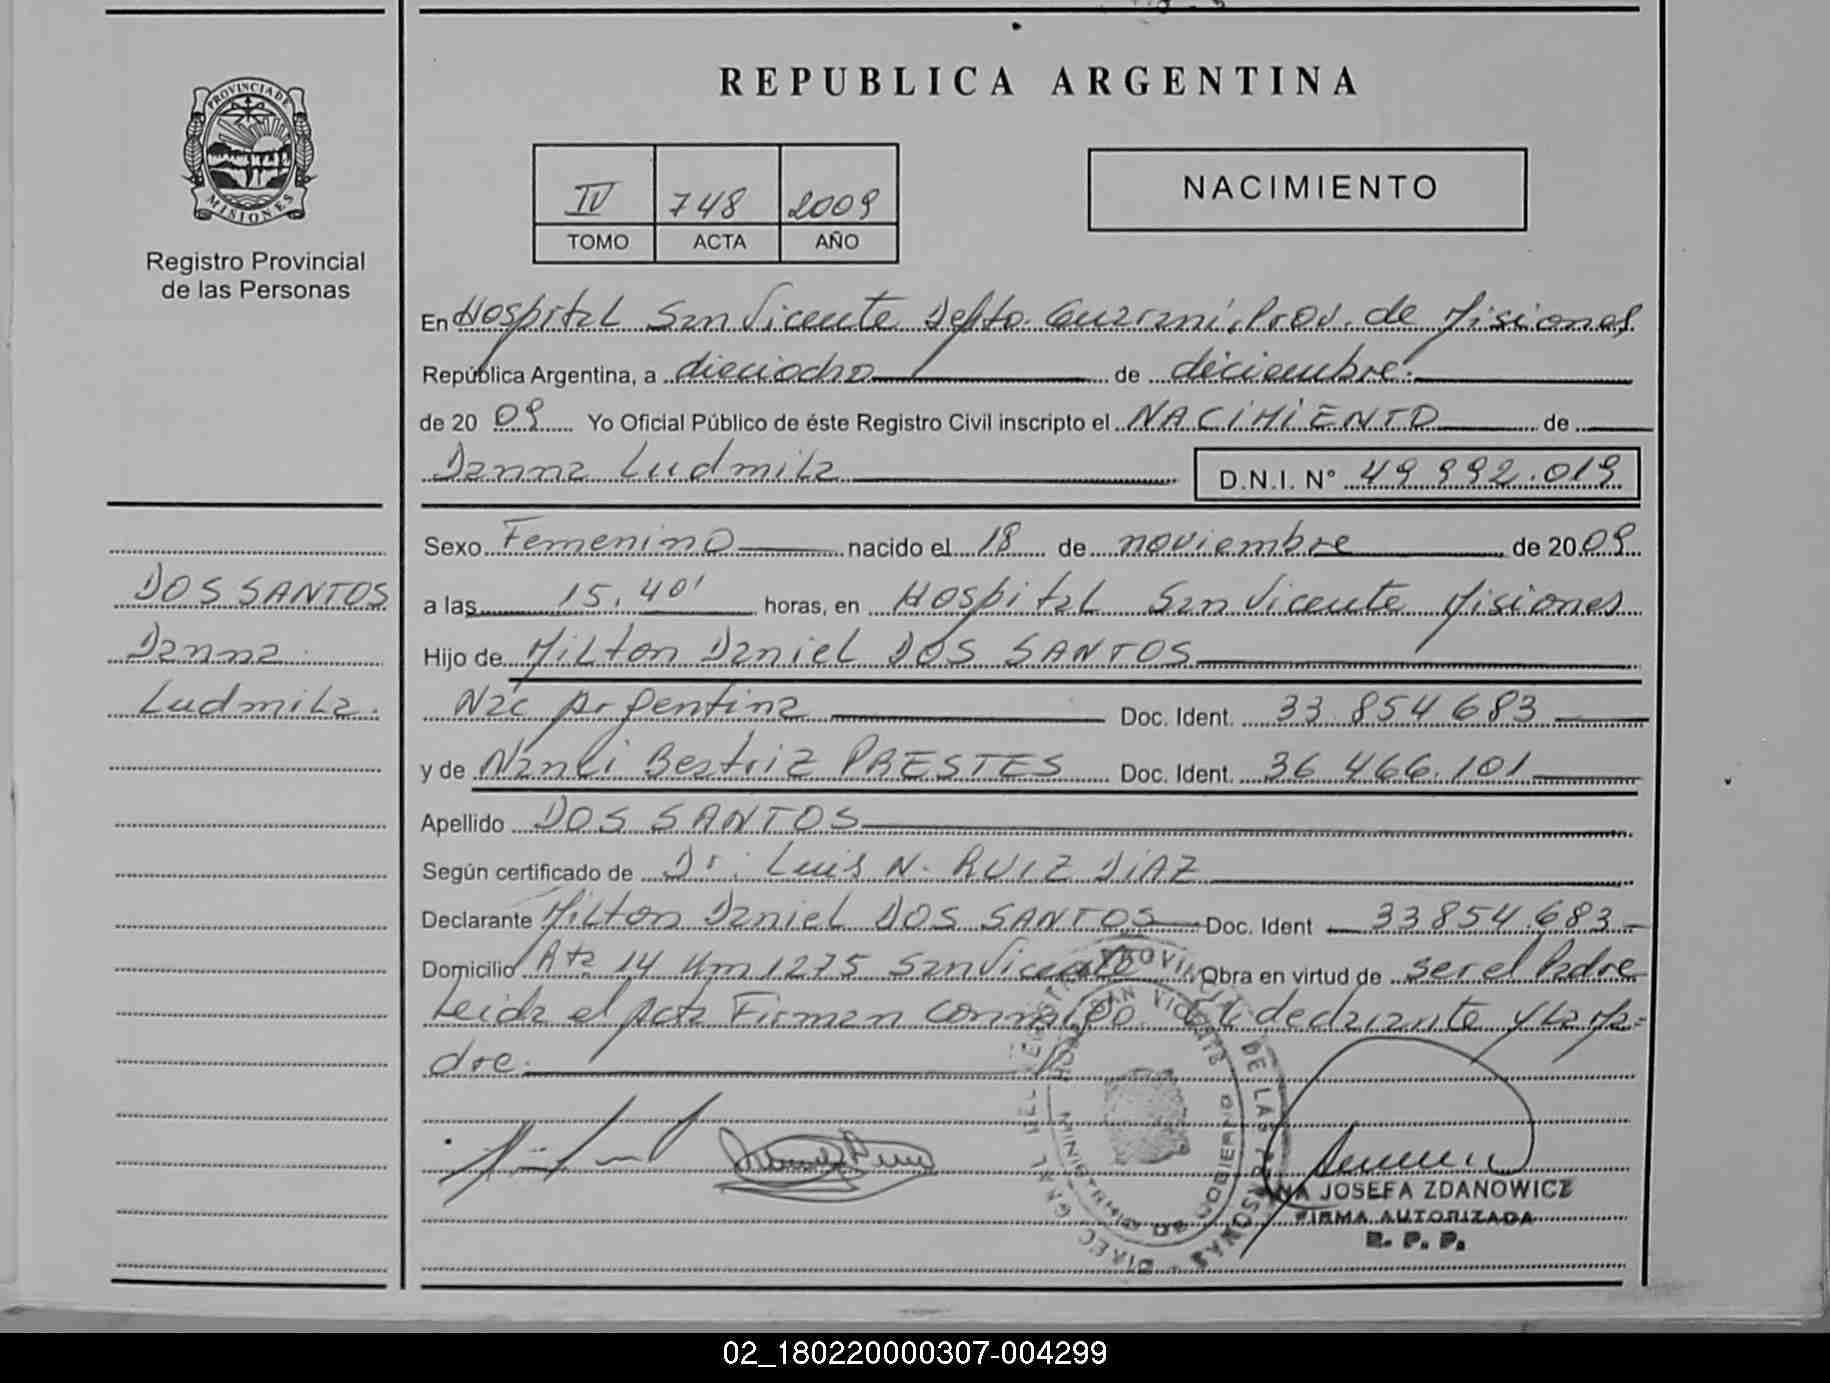 REPUBLICA ARGENTINA
PROVINCIA DE
MISIONES
Registro Provincial
de las Personas
IV 748 2009
TOMO ACTA AÑO
NACIMIENTO
En Hospital San Vicente Depto. Guaraní, Prov. de Misiones
República Argentina, a dieciocho de diciembre.
de 20 09 Yo Oficial Público de éste Registro Civil inscripto el NACIMIENTO de
Danna Ludmila D.N.I. Nº 49 992.019
DOS SANTOS
Danna
Ludmila.
Sexo Femenino nacido el 18 de noviembre de 20 09
a las 15,40' horas, en Hospital San Vicente Misiones
Hijo de Milton Daniel DOS SANTOS
Nac Argentina Doc. Ident. 33 854 683
y de Nanli Beatriz PRESTES Doc. Ident. 36 466.101
Apellido DOS SANTOS
Según certificado de Dr. Luis N. RUIZ DIAZ
Declarante Milton Daniel DOS SANTOS Doc. Ident 33854.683
Domicilio Rta 14 Km 1275 San Vicente Obra en virtud de ser el Padre
Leida el Acta Firman conmigo el declarante y la ma=
dre.
JOSEFA ZDANOWICZ
FIRMA AUTORIZADA
R. P. P.
02_180220000307-004299